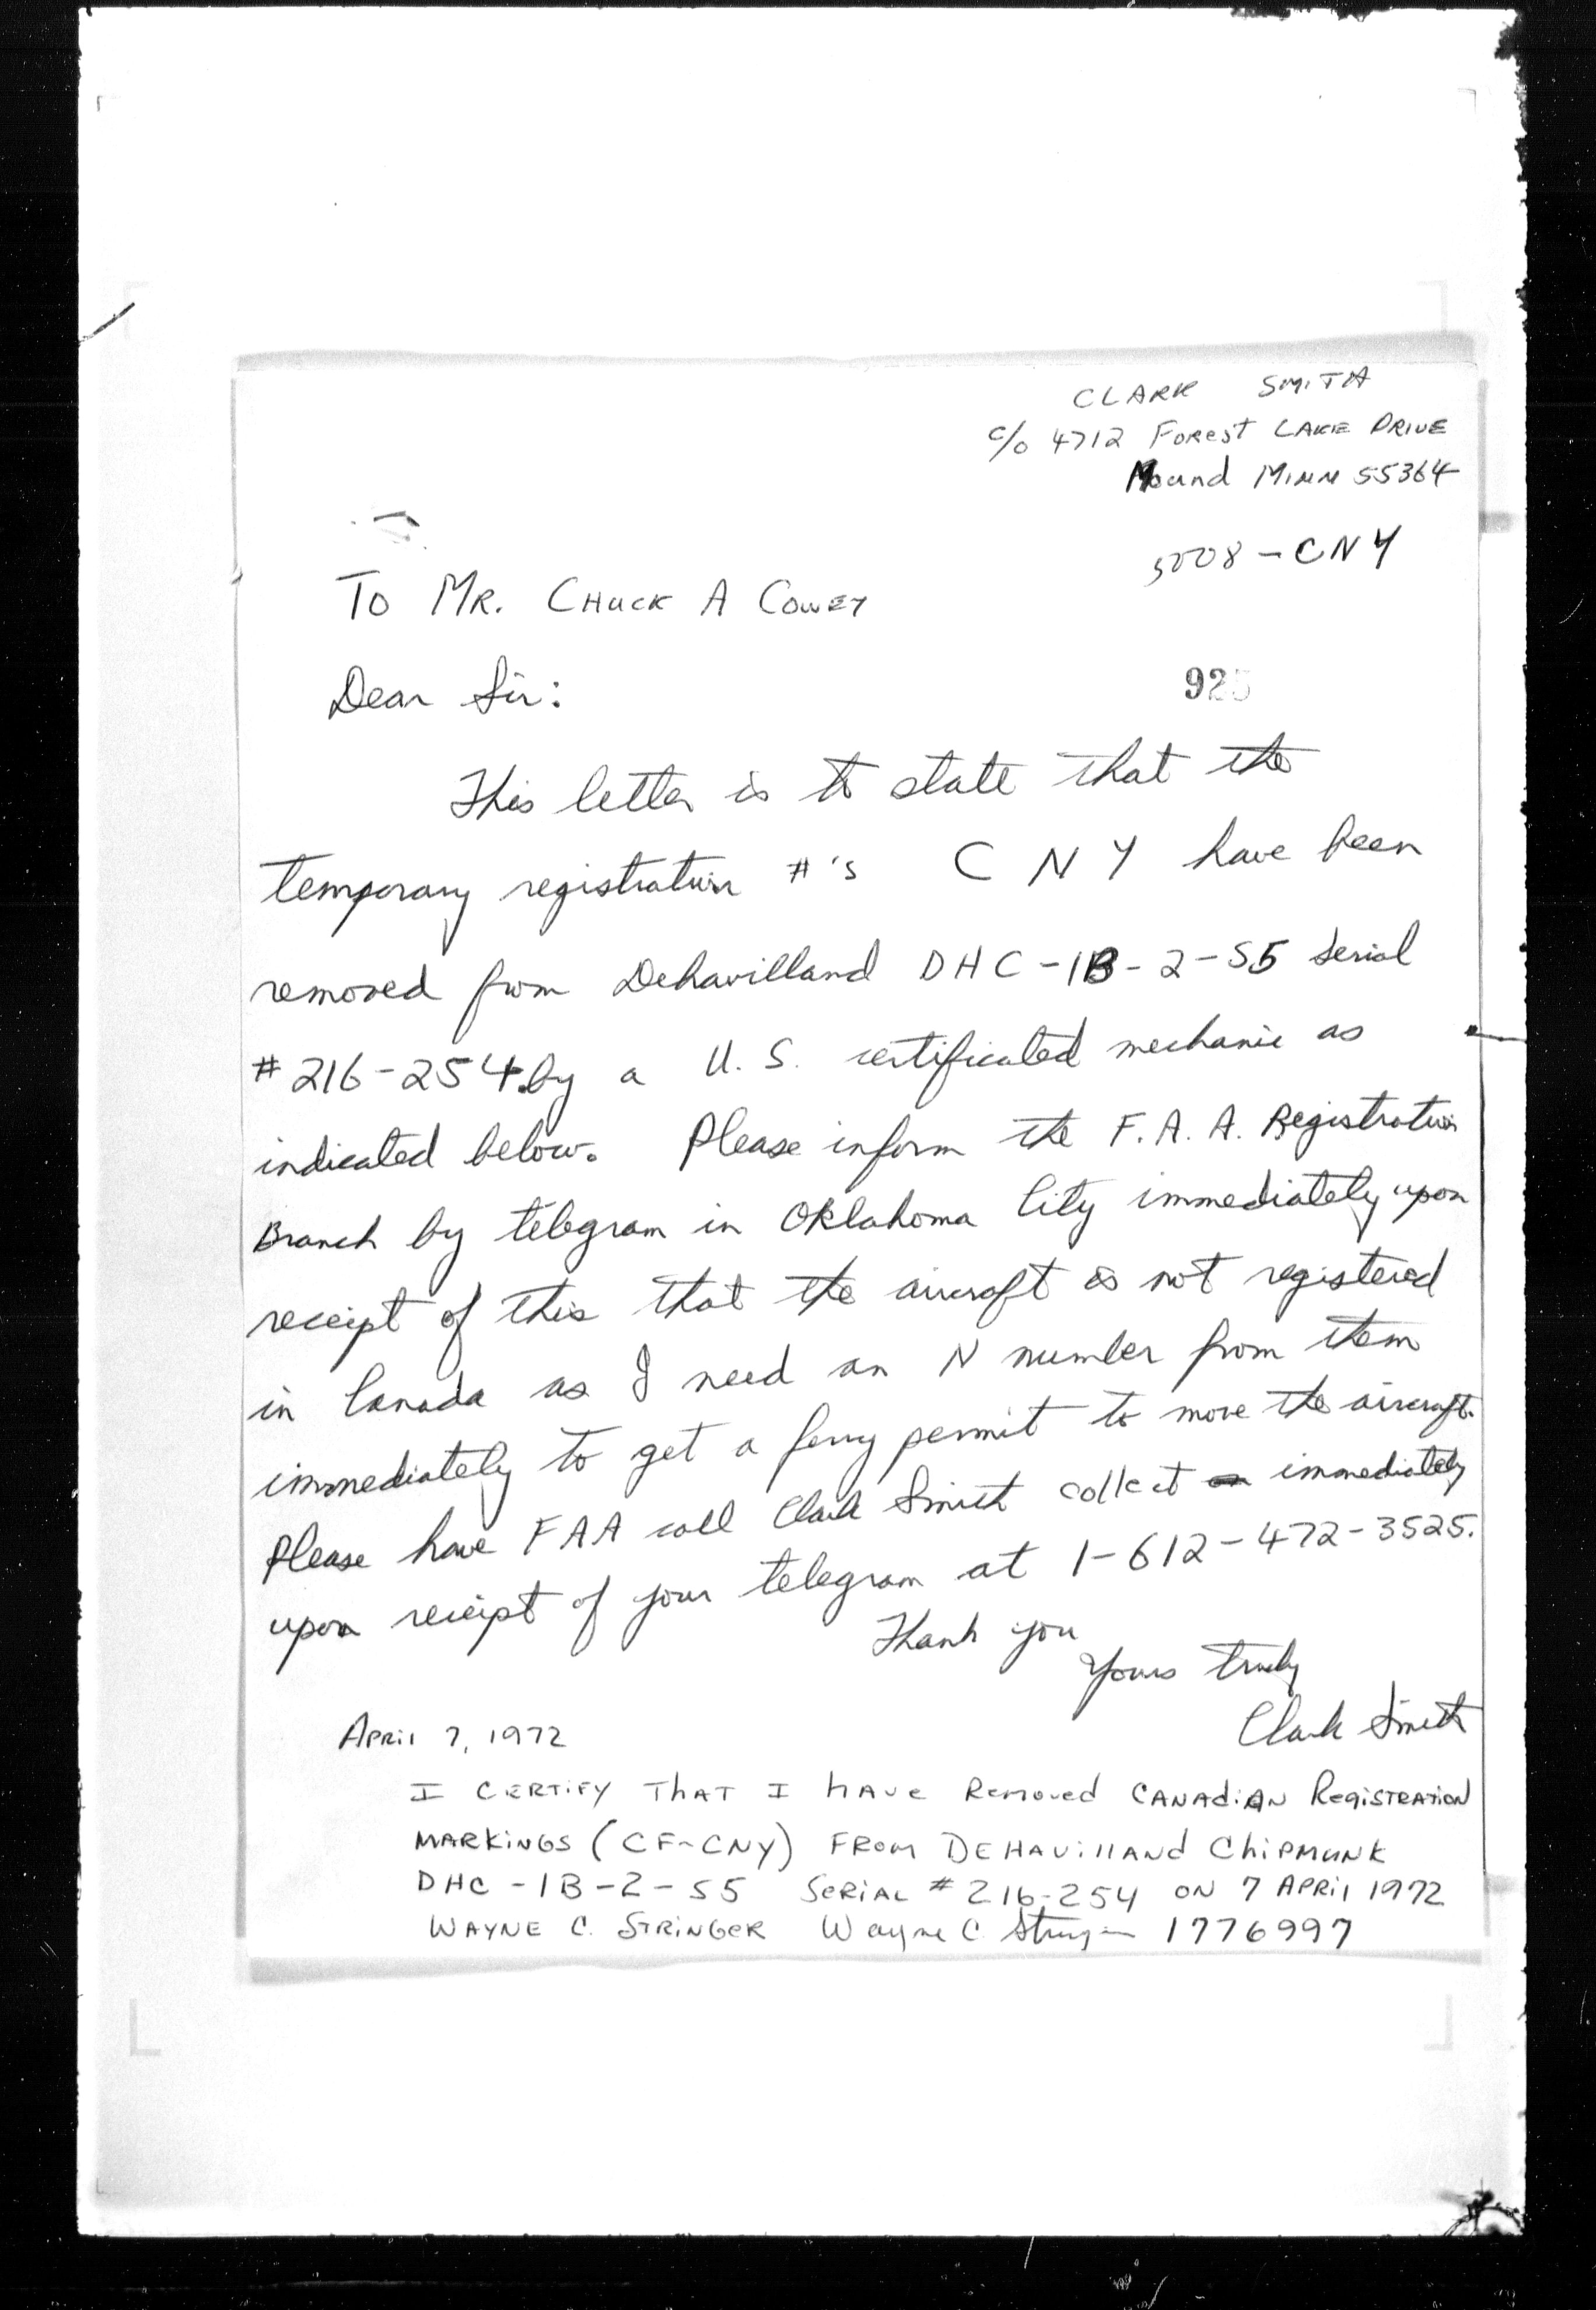 CLARK SMITH
c/o 4712 Forest LAKE DRIVE
Mound MINN 55364
5008 - CNY
TO MR. CHUCK A COWEY
Dear Sir:
925
This letter is to state that the
temporary registration #'s C N Y have been
removed from Dehavilland DHC-1B-2-S5 serial
#216-254 by a U.S. certificated mechanic as
indicated below. Please inform the F.A.A. Registration
Branch by telegram in Oklahoma City immediately upon
receipt of this that the aircraft is not registered
in Canada as I need an N number from them
immediately to get a ferry permit to move the aircraft.
Please have FAA call Clark Smith collect immediately
upon receipt of your telegram at 1-612-472-3525.
Thank you
Yours truly
Clark Smith
April 7, 1972
I CERTIFY THAT I HAVE Removed CANADIAN REGISTRATION
MARKINGS (CF-CNY) FROM DEHAVILLAND CHIPMUNK
DHC-1B-2-S5 SERIAL #216-254 ON 7 APRIL 1972
WAYNE C. STRINGER Wayne C Stringer 1776997